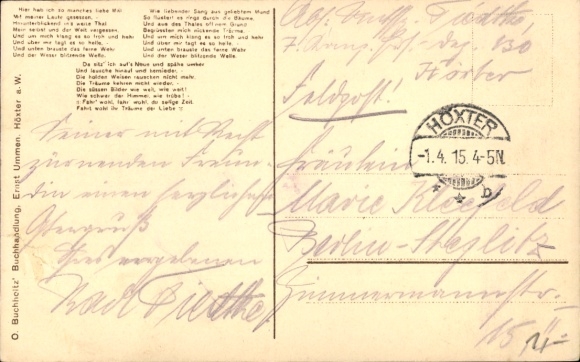 Hier hab ich so manches liebe Mal
Mit meiner Laute gesessen,
Hinunterblickend ins weite Thal
Mein selbst und der Welt vergessen.
Und um mich klang es so froh und hehr
Und über mir tagt es so helle,
Und unten brauste das ferne Wehr
Und der Weser blitzende Welle.
Wie liebender Sang aus geliebtem Mund
So flüstert es rings durch die Bäume,
Und aus des Thales off'nem Grund
Begrüssten mich nickende Träume.
Und um mich klang es so froh und hehr
Und über mir tagt es so helle,
Und unten brauste das ferne Wehr
Und der Weser blitzende Welle.
Da sitz' ich auf's Neue und spähe umher
Und lausche hinauf und hernieder,
Die holden Weisen rauschen nicht mehr,
Die Träume kehren nicht wieder.
Die süssen Bilder wie weit, wie weit!
Wie schwer der Himmel, wie trübe!
Fahr' wohl, fahr wohl, du selige Zeit.
Fahrt wohl ihr Träume der Liebe
O. Buchholtz' Buchhandlung, Ernst Ummen, Höxter a. W.
Seiner mit Recht
zürnenden Freun-
din einen herzlichen
Ostergruß
Ihres ergebenen
Karl Tiedtke
Tiedtke
Höxter
Feldpost!
HÖXTER
-1.4.15.4-5N.
* * D
Fräulein
Marie
Berlin-Steglitz
Zimmermannstr.
15 II